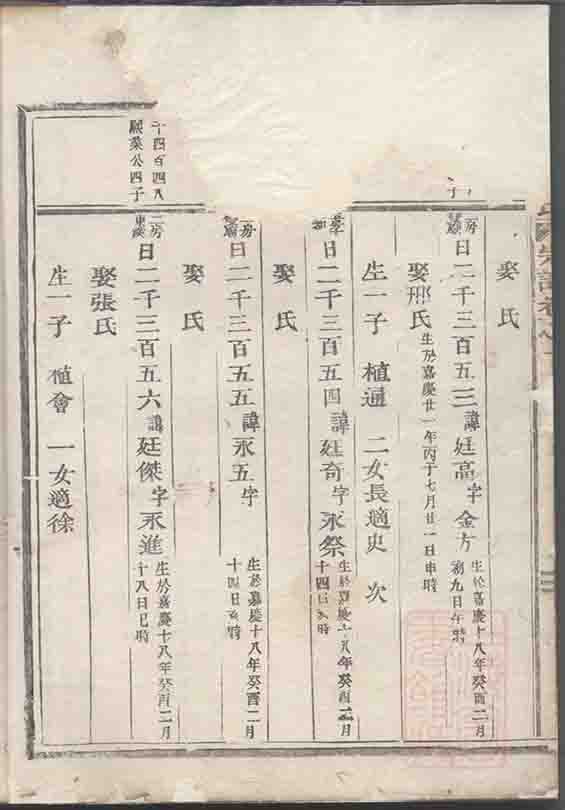 娶氏
日二千三百五三諱廷高字金方生於嘉慶十八年癸酉二月
初九日午時
娶邢氏生於嘉慶廿一年丙子七月廿一日申時
生一子植通二女長適史次
日二千三百五四諱廷奇字永祭生於嘉慶十八年癸酉二月
十四日時
娶氏
日二千三百五五諱永五字生於嘉慶十八年癸酉二月
十四日時
娶氏
千四百四八
顯業公四子
二房
日二千三百五六諱廷傑字永進生於嘉慶十八年癸酉二月
十八日巳時
娶張氏
生一子植會一女適徐